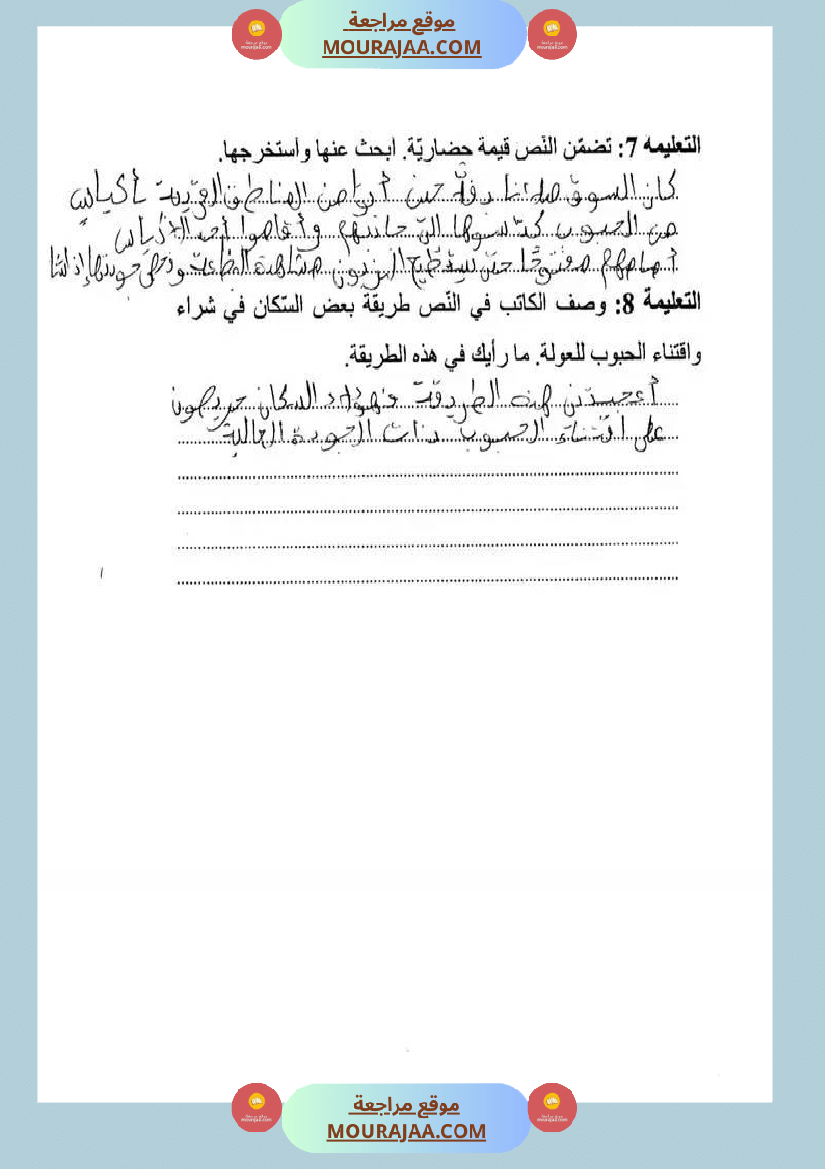 موقع مراجعة
MOURAJAA.COM
التعليمة 7: تضمّن النّص قيمة حضاريّة. ابحث عنها واستخرجها.
كان السوق حين من المناطق القريبة بأكياس
من الحبوب كدّسوها إلى جانبهم وأقاموا أحد الأكياس
أمامهم مفتوحًا حتى يستطيع الزبون مشاهدة البضاعة وتفحّص جودتها إذا شاء
التعليمة 8: وصف الكاتب في النّص طريقة بعض السّكان في شراء
واقتناء الحبوب للعولة. ما رأيك في هذه الطريقة.
أعجبتني هذه الطريقة فهؤلاء السكان حريصون
على اقتناء الحبوب ذات الجودة العالية
موقع مراجعة
MOURAJAA.COM